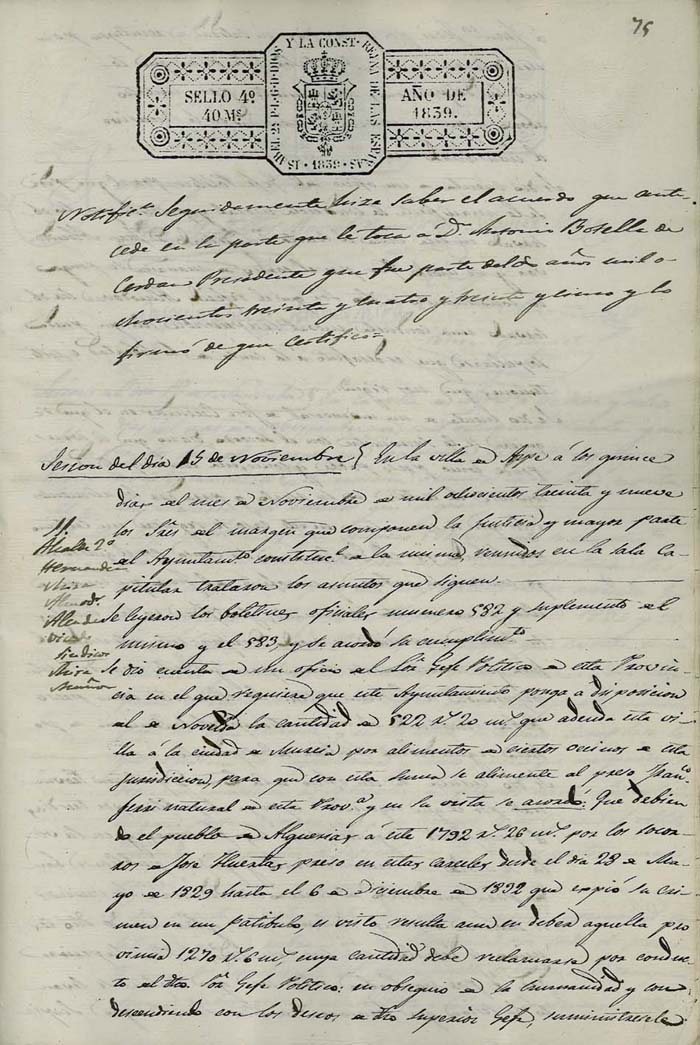 75
ISABEL 2ª P. L. G. D. DIOS Y LA CONST. REYNA DE LAS ESPAÑAS · 1839 ·
SELLO 4º
40 Ms.
AÑO DE
1839.
Notificn. Seguidamente hize saber el acuerdo que ante-
cede en la parte que le toca á Dn. Antonio Botella de
Cerdan Presidente que fue parte del de años mil o-
chocientos treinta y cuatro y treinta y cinco y lo
firmó de que certifico=
Sesion del dia 15 de Noviembre En la villa de Aspe á los quince
dias del mes de Noviembre de mil ochocientos treinta y nueve
los Sres. del margen que componen la Justicia y mayor parte
del Ayuntamto. constitucl. de la misma, reunidos en la sala ca-
pitular trataron los asuntos que siguen.
Alcalde 2º
Hernandez
Mira
Almod.
Alcaldes
Síndicos
Mira
Muñoz
Se leyeron los boletines oficiales numero 582 y suplemento al
mismo y el 583, y se acordó su cumplimto.
Se dio cuenta de un oficio del Sor. Gefe Politico de esta Provin-
cia en el que requiere que este Ayuntamiento ponga á disposicion
del de Novelda la cantidad de 522 rs. 20 ms. que adeuda esta vi-
lla á la ciudad de Murcia por alimentos de ciertos ocinos de esta
jurisdiccion, para que con esta suma se alimente al preso Franco.
Ferri natural de esta Prova. y en la vista se acordó: Que debien-
do el pueblo de Alguerias á este 1792 rs. 26 ms. por los socor-
ros de Jose Huertas, preso en estas carceles, desde el dia 28 de Ma-
yo de 1829 hasta el 6 de diciembre de 1832 que espió su cri-
men en un patibulo, es visto resulta aun en deber aquella pro
vincia 1270 rs. 6 ms., cuya cantidad debe reclamarse por conduc-
to del dho. Sor. Gefe Politico: en obsequio de la humanidad y con
descendiendo con los deseos de dho superior Gefe, suministresele